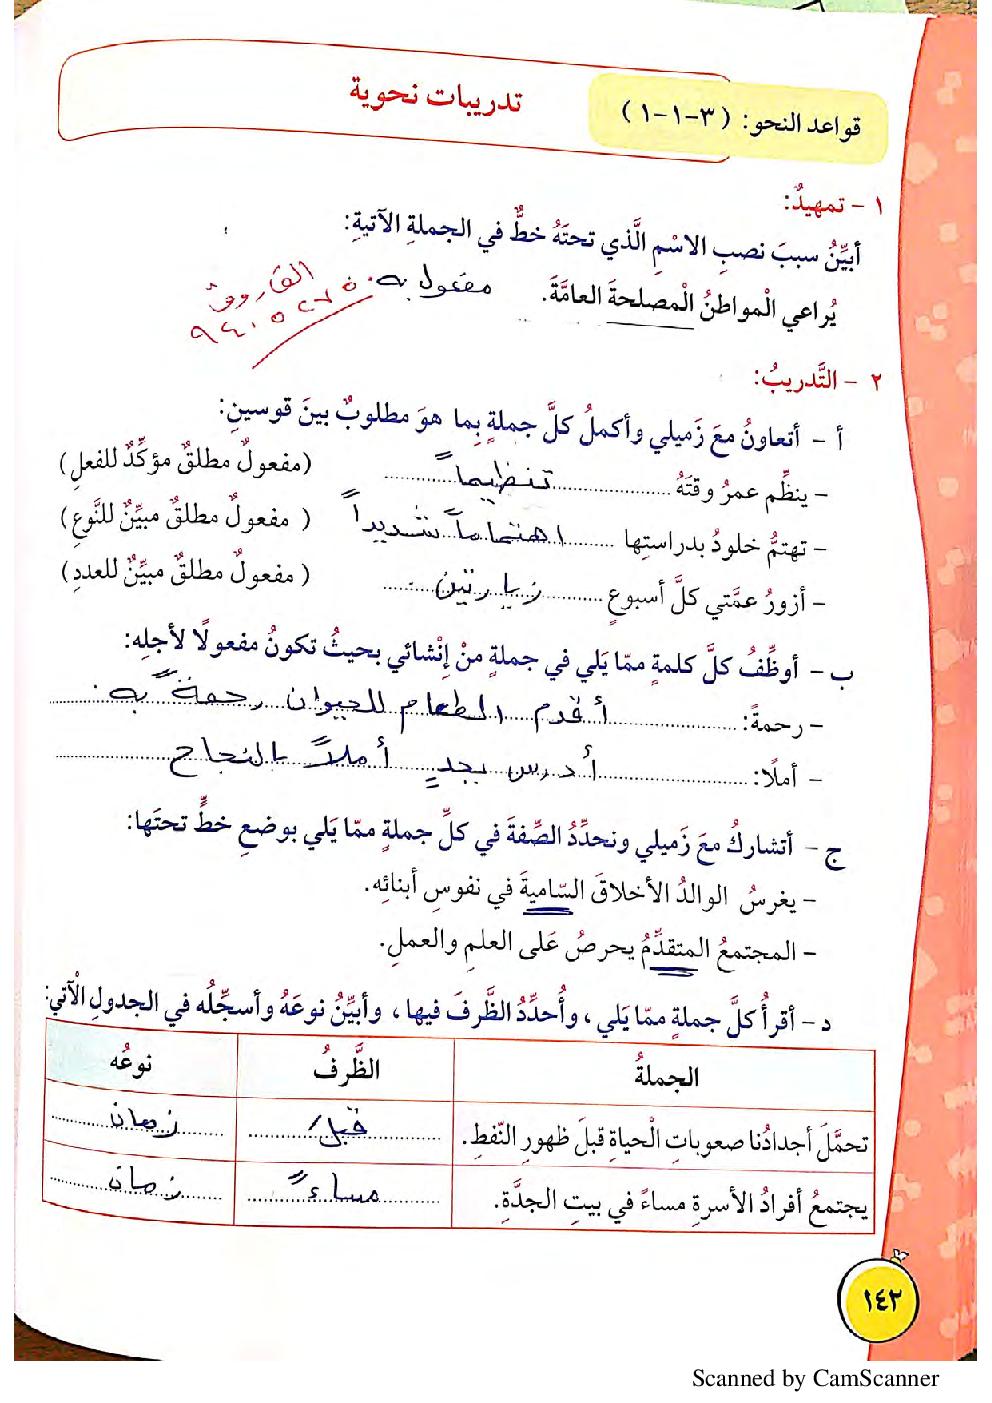 قواعد النحو: (٣-١-١)
تدريبات نحوية
١ - تمهيدٌ:
أبيِّنُ سببَ نصبِ الاسْمِ الَّذي تحتَهُ خطٌّ في الجملةِ الآتيةِ:
يُراعي الْمواطنُ الْمصلحةَ العامَّةَ. مفعول به.
الفاروق
٩٤٠٥٢٧٥
٢ - التَّدريبُ:
أ - أتعاونُ معَ زَميلي وأكملُ كلَّ جملةٍ بِما هوَ مطلوبٌ بينَ قوسينِ:
- ينظِّم عمرُ وقتَهُ تنظيماً (مفعولٌ مطلقٌ مؤكِّدٌ للفعلِ)
- تهتمُّ خلودُ بدراستِها اهتماماً شديداً (مفعولٌ مطلقٌ مبيِّنٌ للنَّوعِ)
- أزورُ عمَّتي كلَّ أسبوعٍ زيارتين. (مفعولٌ مطلقٌ مبيِّنٌ للعددِ)
ب - أوظِّفُ كلَّ كلمةٍ ممّا يَلي في جملةٍ منْ إنْشائي بحيثُ تكونُ مفعولًا لأجلِه:
- رحمةً: أقدم الطعام للحيوان رحمةً به.
- أملًا: أدرس بجدٍ أملاً بالنجاح
ج - أتشاركُ معَ زَميلي ونحدِّدُ الصِّفةَ في كلِّ جملةٍ ممّا يَلي بوضعِ خطٍّ تحتَها:
- يغرسُ الوالدُ الأخلاقَ السّاميةَ في نفوسِ أبنائِه.
- المجتمعُ المتقدِّمُ يحرصُ عَلى العلمِ والعملِ.
د - أقرأُ كلَّ جملةٍ ممّا يَلي، وأُحدِّدُ الظَّرفَ فيها، وأبيِّنُ نوعَهُ وأسجِّلُه في الجدولِ الْآتي:
الجملةُ الظَّرفُ نوعُه
تحمَّلَ أجدادُنا صعوباتِ الْحياةِ قبلَ ظهورِ النّفطِ. قبلَ زمان
يجتمعُ أفرادُ الأسرةِ مساءً في بيتِ الجدَّةِ. مساءً زمان
١٤٢
Scanned by CamScanner